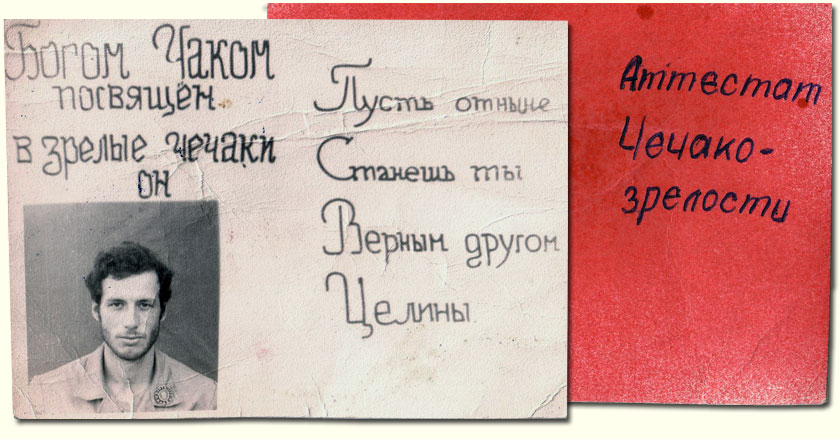 Богом Чаком
посвящён
в зрелые чечаки
он
Пусть отныне
Станешь ты
Верным другом
Целины.
Аттестат
Чечако-
зрелости